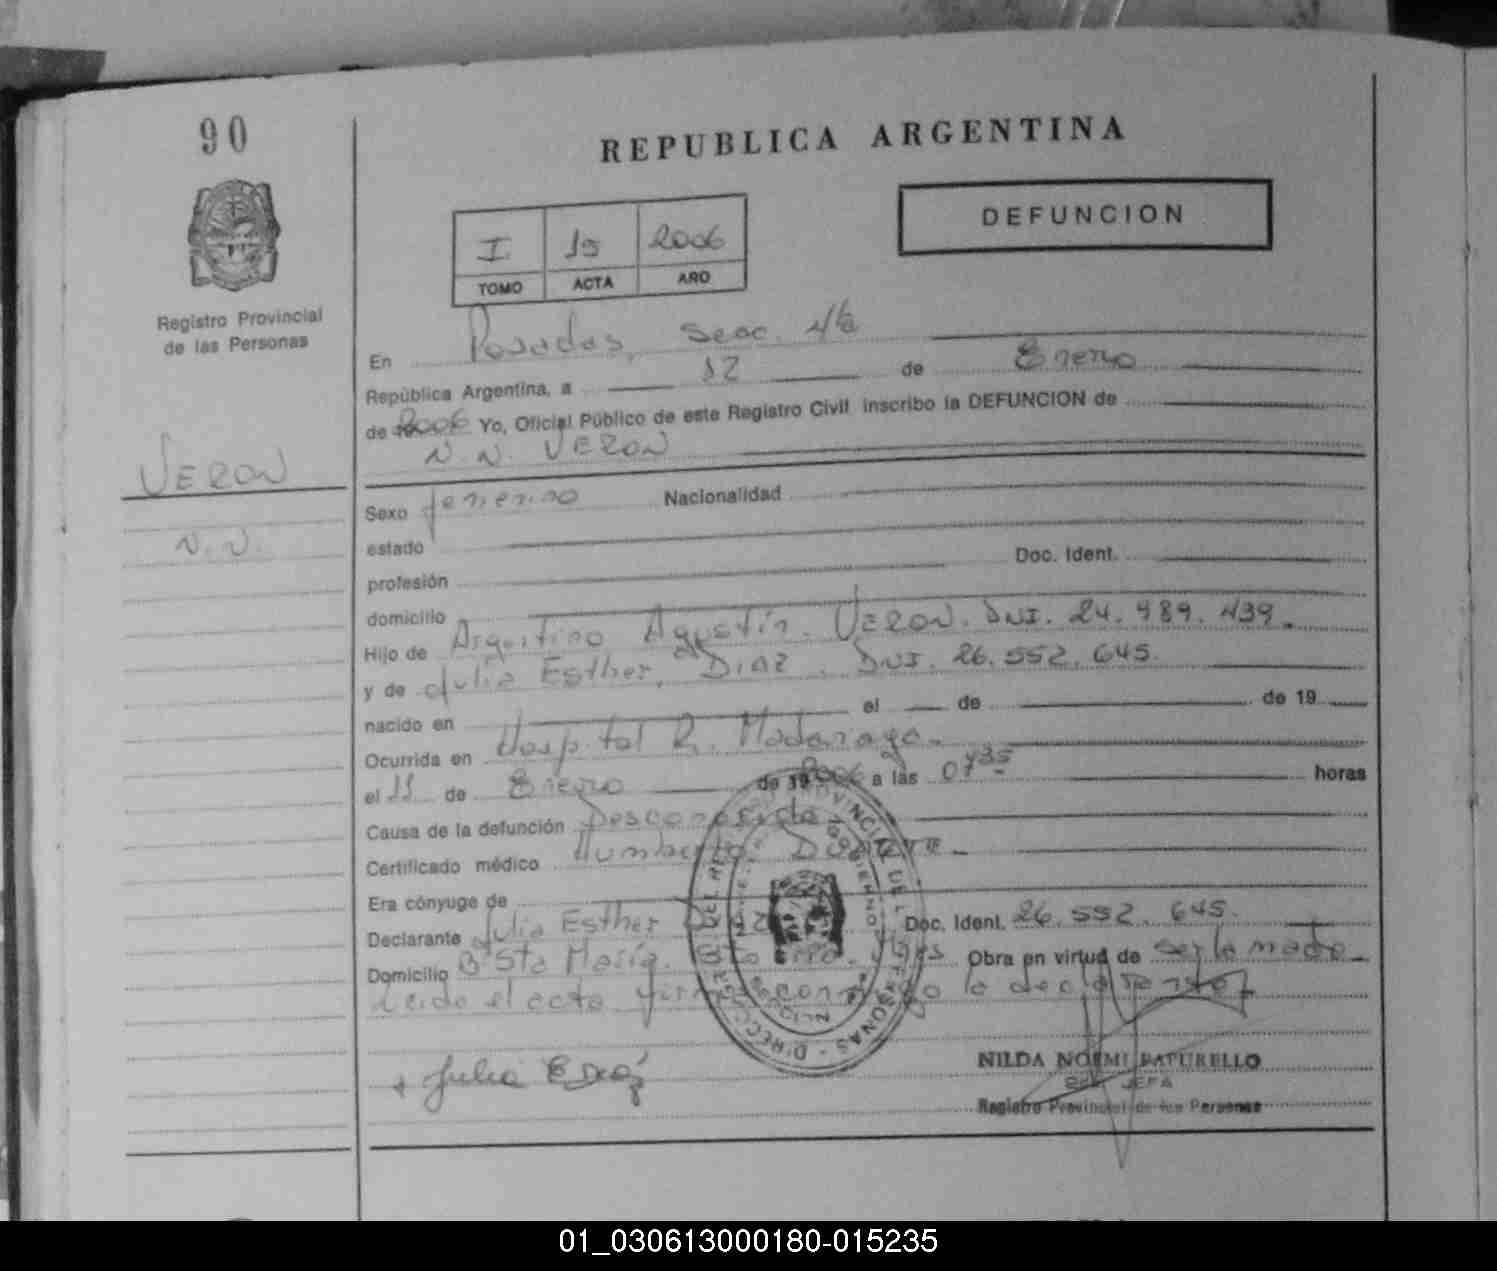 90
REPUBLICA ARGENTINA
DEFUNCION
I 19 2006
TOMO ACTA AÑO
Registro Provincial
de las Personas
En Posadas, Secc. 4ta
República Argentina, a 12 de Enero
de 2006 Yo, Oficial Público de este Registro Civil inscribo la DEFUNCION de
N. N. VERON
VERON
N. N.
Sexo femenino Nacionalidad
estado
profesión Doc. Ident.
domicilio
Hijo de Argentino Agustín VERON. DNI. 24.989.439.
y de Julia Esther DIAZ. DNI. 26.552.645.
nacido en el de de 19
Ocurrida en Hospital R. Madariaga.
el 11 de Enero de 2006 a las 07 35 horas
Causa de la defunción Desconocida
Certificado médico Humberto
Era cónyuge de
Declarante Julia Esther Diaz Doc. Ident. 26.552.645.
Domicilio Bº Sta María. Obra en virtud de ser la madre
Leida el acta firma conmigo la declarante
Julia E Diaz
NILDA NOEMI PATURELLO
JEFA
Registro Provincial de las Personas
DIRECCION PROVINCIAL DEL REGISTRO DE LAS PERSONAS
01_030613000180-015235